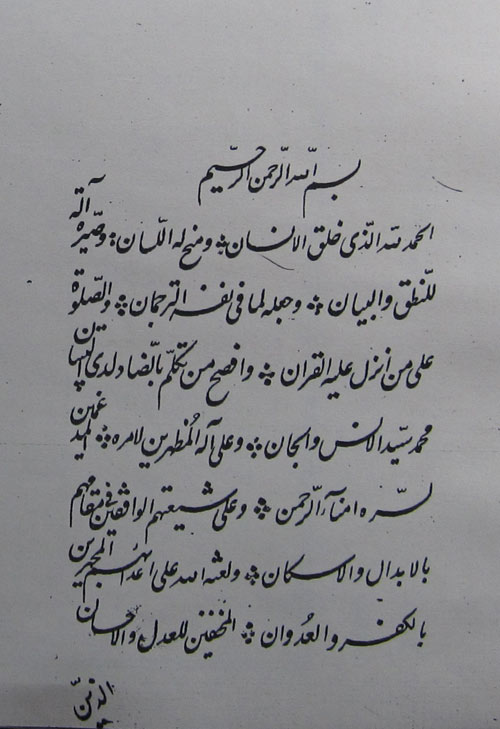 بسم الله الرّحمن الرّحیم
الحمد لله الذّی خلق الانسان ؞ ومنح له اللّسان ؞ وصیّره آلة
للنّطق والبیان ؞ وجعله لما فی نفسه الترجمان ؞ والصّلوة
علی من أنزل علیه القران ؞ وافصح من تکلّم بالضّاد لدی التبیان
محمد سیّد الانس والجان ؞ وعلی آله المُظهرین لامره ؞
لسرّه امناۤء الرّحمن ؞ وعلی شیعتهم الواقفین فی مقامهم
بالابدال والاسکان ؞ ولعنة الله علی اعدائهم المجبرین
بالکفر والعُدوان ؞ المخفین للعدل والاحسان
الذین